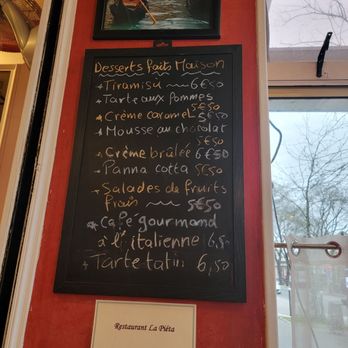 Desserts faits Maison
+ Tiramisu ~ 6€50
+ Tarte aux pommes
5€50
+ Crème caramel 5€50
+ Mousse au chocolat
5€50
+ Crème brûlée 6€50
+ Panna cotta 5€50
+ Salades de fruits
frais ~ 5€50
+ Café gourmand
à l'italienne 6,50
+ Tarte tatin 6,50
Restaurant La Piéta